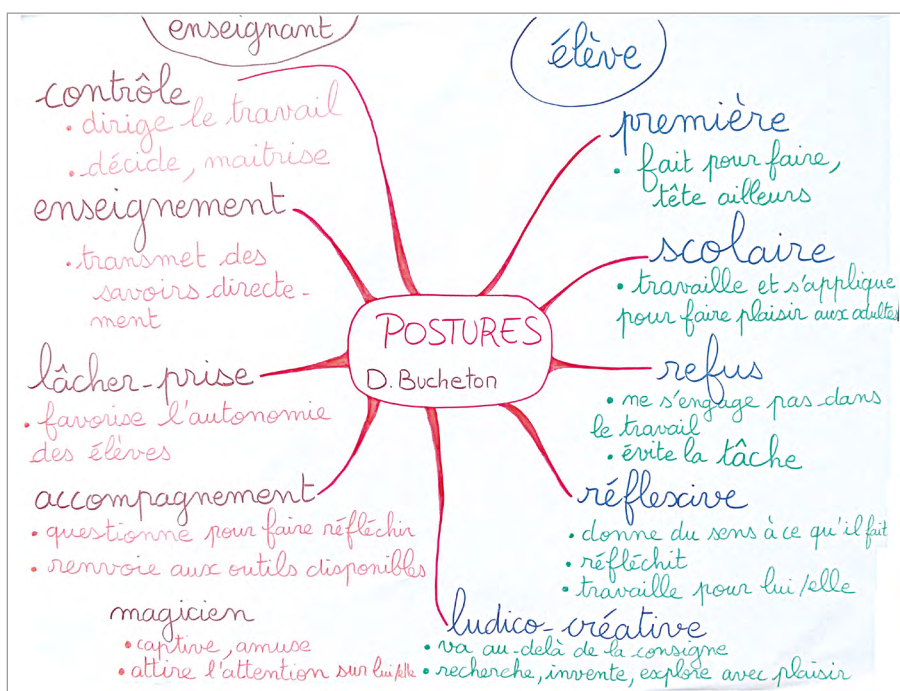 enseignant
contrôle
• dirige le travail
• décide, maitrise
enseignement
• transmet des
savoirs directe-
ment
lâcher-prise
• favorise l'autonomie
des élèves
accompagnement
• questionne pour faire réfléchir
• renvoie aux outils disponibles
magicien
• captive, amuse
• attire l'attention sur lui/elle
POSTURES
D. Bucheton
élève
première
• fait pour faire,
tête ailleurs
scolaire
• travaille et s'applique
pour faire plaisir aux adultes
refus
• ne s'engage pas dans
le travail
• évite la tâche
réflexive
• donne du sens à ce qu'il fait
• réfléchit
• travaille pour lui/elle
ludico-créative
• va au-delà de la consigne
• recherche, invente, explore avec plaisir